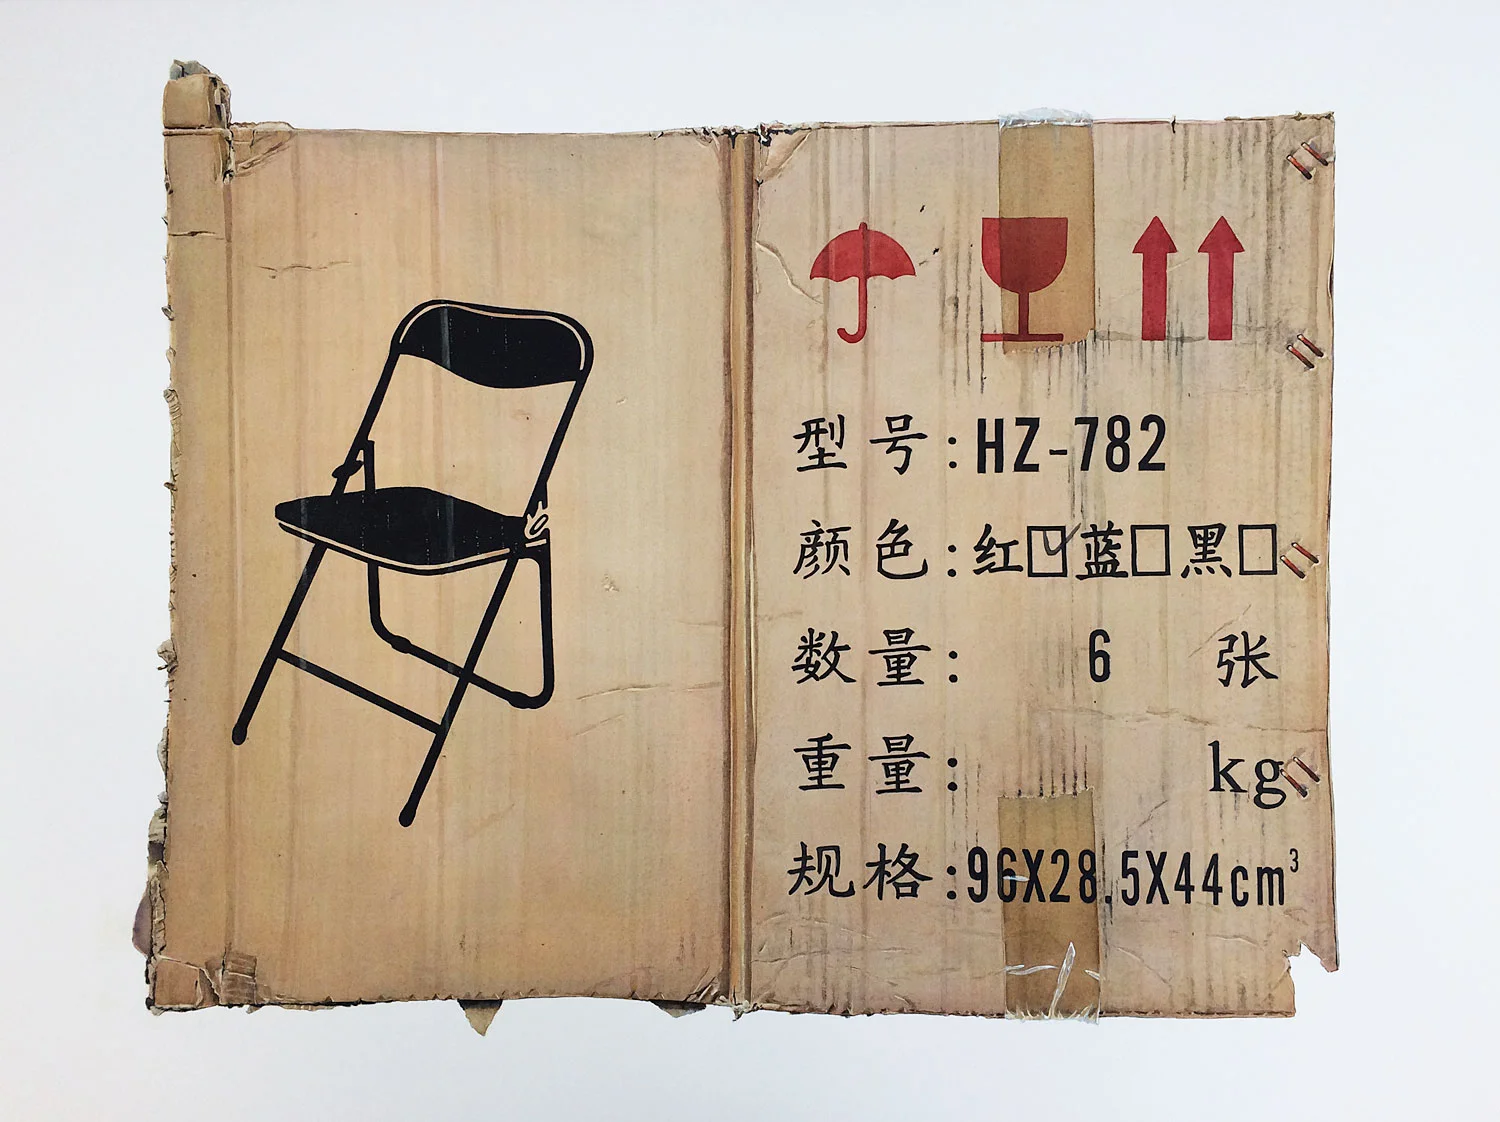 型号:HZ-782
颜色:红□蓝□黑□
数量: 6 张
重量: kg
规格:96X28.5X44cm³